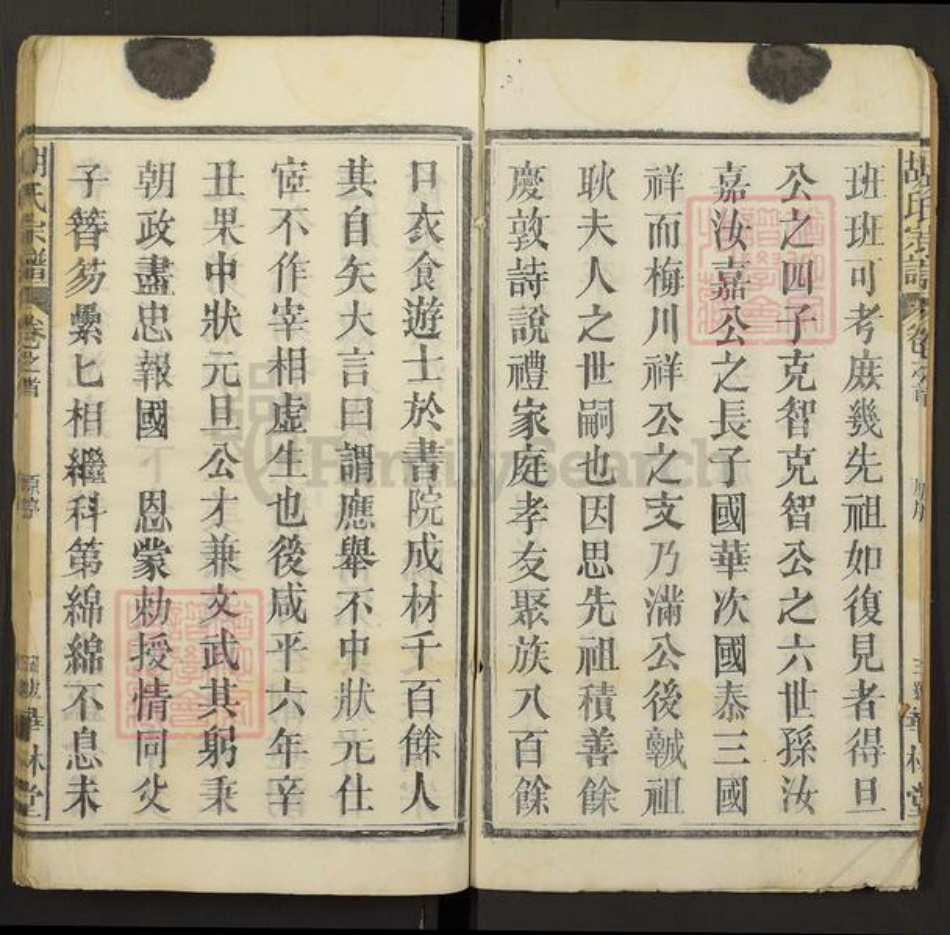 班班可考庶幾先祖如復見者得旦
公之四子克智克智公之六世孫汝
嘉汝嘉公之長子國華次國泰三國
祥而梅川祥公之支乃滿公後軾祖
耿夫人之世嗣也因思先祖積善餘
慶敦詩說禮家庭孝友聚族八百餘
口衣食遊士於書院成材千百餘人
其自矢大言曰謂應舉不中狀元仕
宦不作宰相虛生也後咸平六年辛
丑果中狀元旦公才兼文武其躬秉
朝政盡忠報國 恩蒙勅授情同父
子簪笏纍匕相繼科第綿綿不息未
胡氏宗譜 卷之首 華林堂
FamilySearch